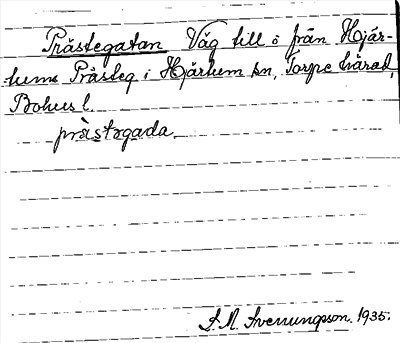 Prästegatan Väg till o från Hjär-
tums Prästeg i Hjärtum sn, Torpe härad,
Bohus l.
prästegada
S. M. Svenungsson. 1935.